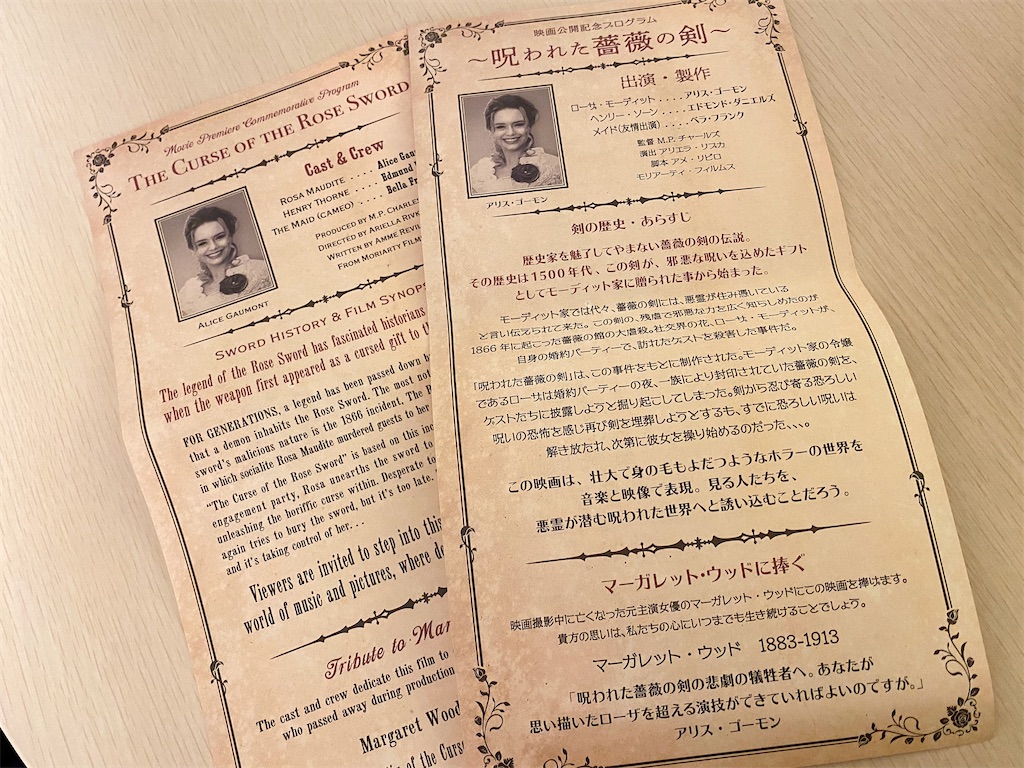 Movie Premiere Commemorative Program
THE CURSE OF THE ROSE SWORD
Cast & Crew
ROSA MAUDITE ..... Alice Gau
HENRY THORNE ..... Edmund
THE MAID (CAMEO) .... Bella Fr
PRODUCED BY M.P. CHARLES
DIRECTED BY ARIELLA RIVK
WRITTEN BY AMME REVIL
FROM MORIARTY FILM
ALICE GAUMONT
SWORD HISTORY & FILM SYNOPS
The legend of the Rose Sword has fascinated historians
when the weapon first appeared as a cursed gift to th
FOR GENERATIONS, a legend has been passed down b
that a demon inhabits the Rose Sword. The most not
sword's malicious nature is the 1866 incident, The R
in which socialite Rosa Maudite murdered guests to her
"The Curse of the Rose Sword" is based on this inc
engagement party, Rosa unearths the sword to
unleashing the horrific curse within. Desperate to
again tries to bury the sword, but it's too late.
and it's taking control of her...
Viewers are invited to step into this
world of music and pictures, where de
Tribute to Mar
The cast and crew dedicate this film to
who passed away during production
Margaret Wood
of the Curse
映画公開記念プログラム
～呪われた薔薇の剣～
出演・製作
ローサ・モーディット ..... アリス・ゴーモン
ヘンリー・ソーン ..... エドモンド・ダニエルズ
メイド(友情出演) .... ベラ・フランク
監督 M.P.チャールズ
演出 アリエラ・リスカ
脚本 アメ・リビロ
モリアーティ・フィルムス
アリス・ゴーモン
剣の歴史・あらすじ
歴史家を魅了してやまない薔薇の剣の伝説。
その歴史は1500年代、この剣が、邪悪な呪いを込めたギフト
としてモーディット家に贈られた事から始まった。
モーディット家では代々、薔薇の剣には、悪霊が住み憑いている
と言い伝えられて来た。この剣の、残虐で邪悪な力を広く知らしめたのが、
1866年に起こった薔薇の館の大虐殺。社交界の花、ローサ・モーディットが、
自身の婚約パーティーで、訪れたゲストを殺害した事件だ。
「呪われた薔薇の剣」は、この事件をもとに制作された。モーディット家の令嬢
であるローサは婚約パーティーの夜、一族により封印されていた薔薇の剣を、
ゲストたちに披露しようと掘り起こしてしまった。剣から忍び寄る恐ろしい
呪いの恐怖を感じ再び剣を埋葬しようとするも、すでに恐ろしい呪いは
解き放たれ、次第に彼女を操り始めるのだった、、、。
この映画は、壮大で身の毛もよだつようなホラーの世界を
音楽と映像で表現。見る人たちを、
悪霊が潜む呪われた世界へと誘い込むことだろう。
マーガレット・ウッドに捧ぐ
映画撮影中に亡くなった元主演女優のマーガレット・ウッドにこの映画を捧げます。
貴方の思いは、私たちの心にいつまでも生き続けることでしょう。
マーガレット・ウッド 1883-1913
「呪われた薔薇の剣の悲劇の犠牲者へ。あなたが
思い描いたローザを超える演技ができていればよいのですが。」
アリス・ゴーモン